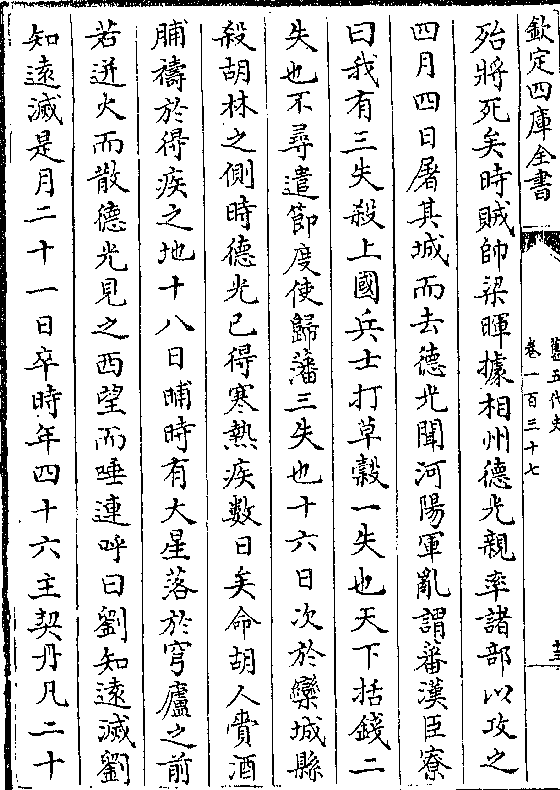 欽定四庫全書
舊五代史
卷一百三十七
殆將死矣時賊帥梁暉據相州德光親率諸部以攻之
四月四日屠其城而去德光聞河陽軍亂謂蕃漢臣寮
曰我有三失殺上國兵士打草穀一失也天下括錢二
失也不尋遣節度使歸藩三失也十六日次於欒城縣
殺胡林之側時德光已得寒熱疾數日矣命胡人賫酒
脯禱於得疾之地十八日晡時有大星落於穹廬之前
若迸火而散德光見之西望而唾連呼曰劉知遠滅劉
知遠滅是月二十一日卒時年四十六主契丹凡二十